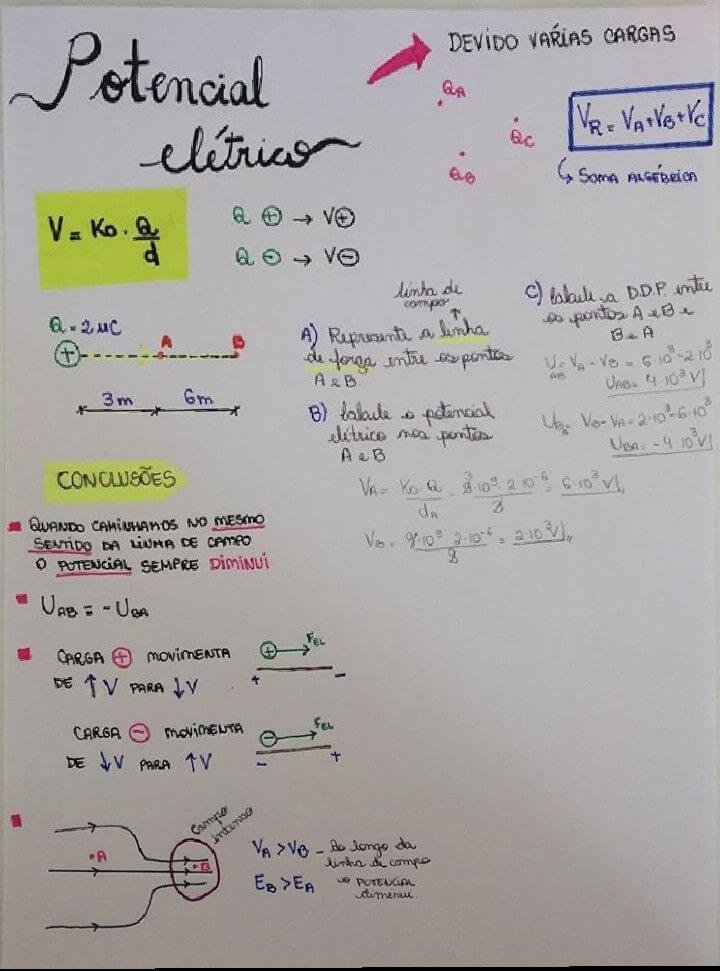 Potencial
elétrico
DEVIDO VÁRIAS CARGAS
QA
QC
QB
VR = VA+VB+VC
↳ SOMA ALGÉBRICA
V = Ko . Q/d
Q ⊕ → V⊕
Q ⊖ → V⊖
Q = 2 μC
⊕ A B
3m 6m
linha de
campo
A) Represente a linha
de força entre os pontos
A e B.
B) Calcule o potencial
elétrico nos pontos
A e B
VA = Ko . Q/dA = 9·10⁹ · 2·10⁻⁶/3 = 6·10³ V//
VB = 9·10⁹ 2·10⁻⁶/9 = 2·10³ V//
C) Calcule a D.D.P. entre
os pontos A e B e
B e A
UAB = VA - VB = 6·10³ - 2·10³
UAB = 4·10³ V//
UBA = VB - VA = 2·10³ - 6·10³
UBA = -4·10³ V//
CONCLUSÕES
QUANDO CAMINHAMOS NO MESMO
SENTIDO DA LINHA DE CAMPO
O POTENCIAL SEMPRE DIMINUI
UAB = - UBA
CARGA ⊕ MOVIMENTA
DE ↑V PARA ↓V
⊕ → FEL
+ -
CARGA ⊖ MOVIMENTA
DE ↓V PARA ↑V
⊖ → FEL
- +
Campo
intenso
A
B
VA > VB - Ao longo da
linha de campo
EB > EA o POTENCIAL
diminui.